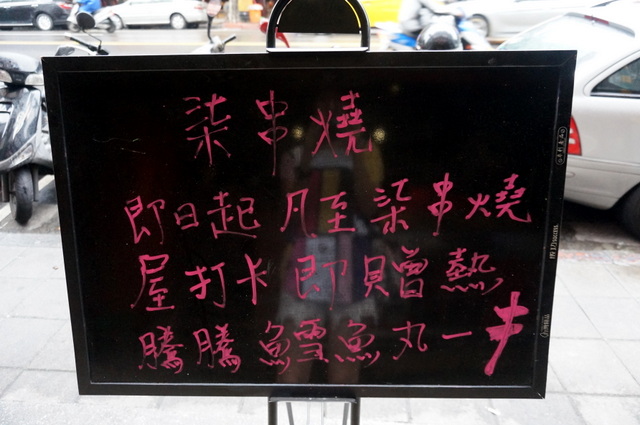 柒串燒
即日起 凡至柒串燒
屋打卡即贈熱
騰騰鱈魚丸一串